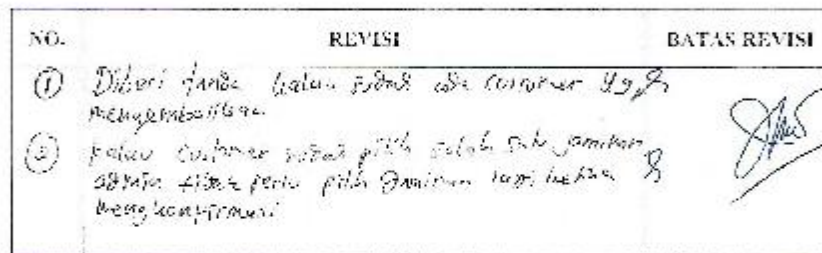 NO. REVISI BATAS REVISI
① Diberi tanda kalau sudah ada customer yg
mengembalikan
② kalau customer sudah pilih salah satu jaminan
admin tidak perlu pilih jaminan lagi ketika
mengkonfirmasi